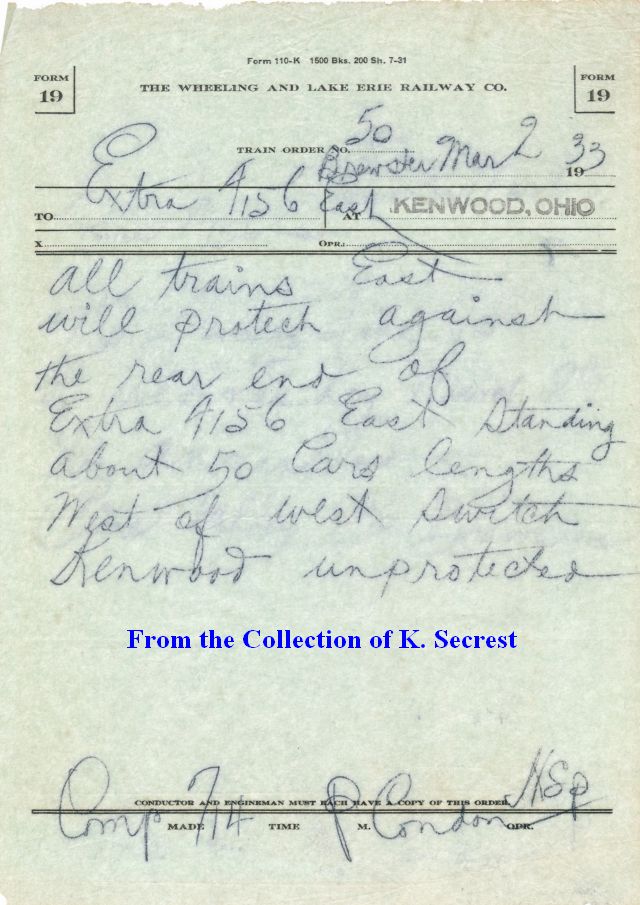 Form 110-K 1500 Bks. 200 Sh. 7-31
FORM 19
THE WHEELING AND LAKE ERIE RAILWAY CO.
FORM 19
TRAIN ORDER NO. 50
Brewster Mar 2 1933
TO Extra 4156 East AT KENWOOD, OHIO
X OPR.;
All trains East
will protect against
the rear end of
Extra 4156 East Standing
about 50 Cars lengths
West of west switch
Kenwood unprotected
From the Collection of K. Secrest
CONDUCTOR AND ENGINEMAN MUST EACH HAVE A COPY OF THIS ORDER.
Comp MADE TIME P M. Condon OPR.